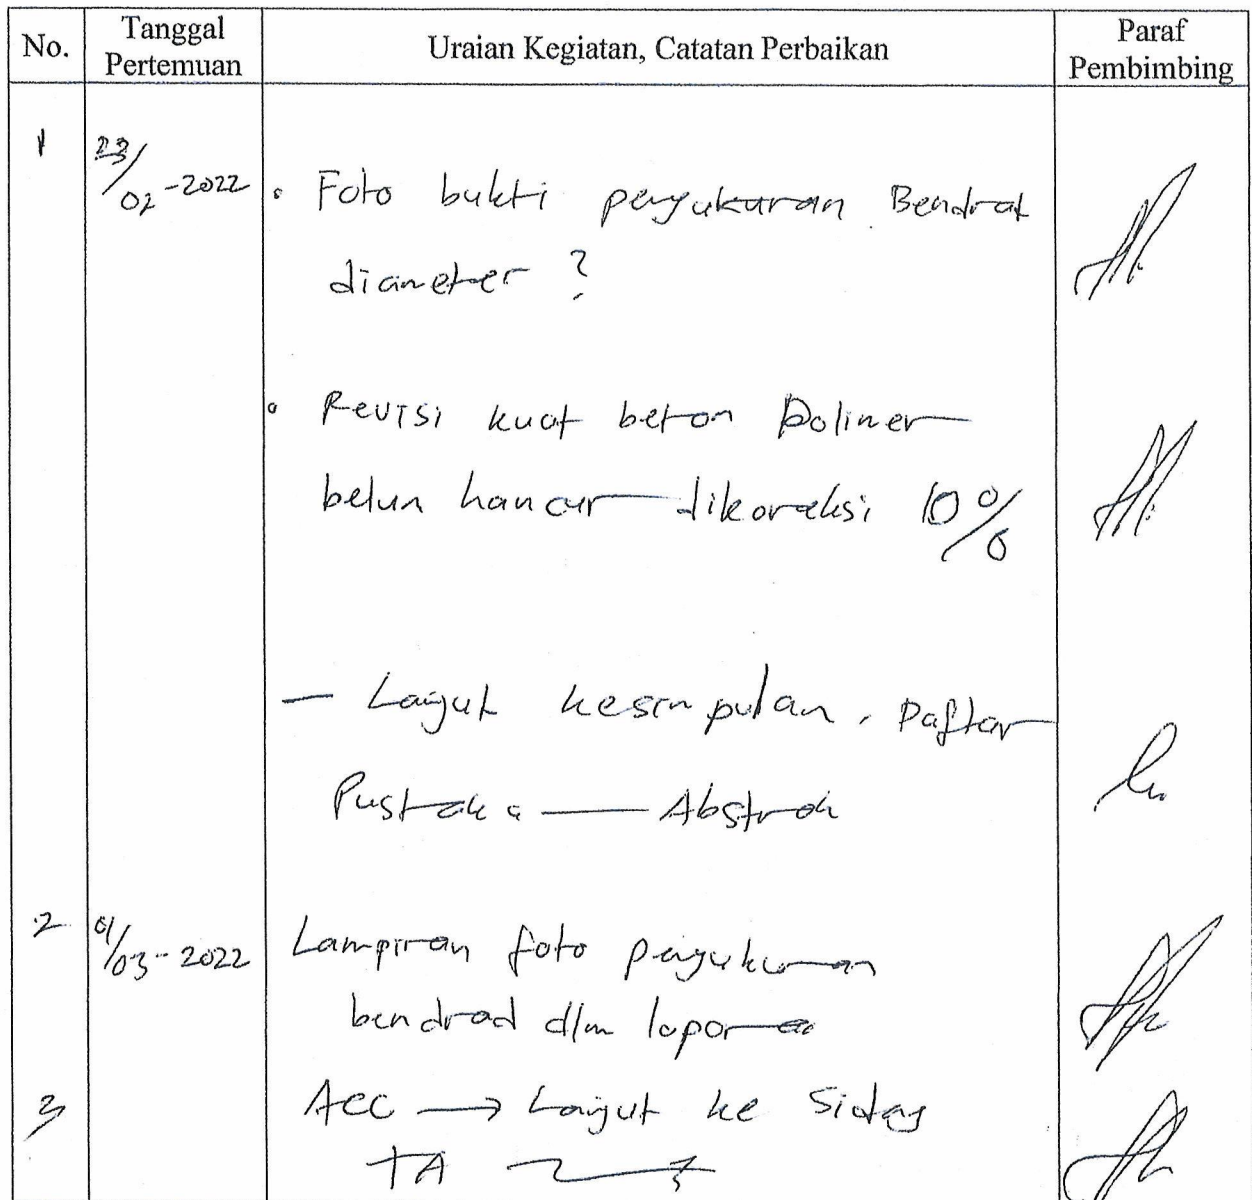 No.
Tanggal
Pertemuan
Uraian Kegiatan, Catatan Perbaikan
Paraf
Pembimbing
1
23/02-2022
• Foto bukti pengukuran Bendrat
diameter ?
• Revisi kuat beton Polimer
belum hancur dikoreksi 10%
— Lanjut kesimpulan, Daftar
Pustaka — Abstrak
2
01/03-2022
Lampiran foto pengukuran
bendrad dlm laporan
3
Acc → Lanjut ke Sidang
TA